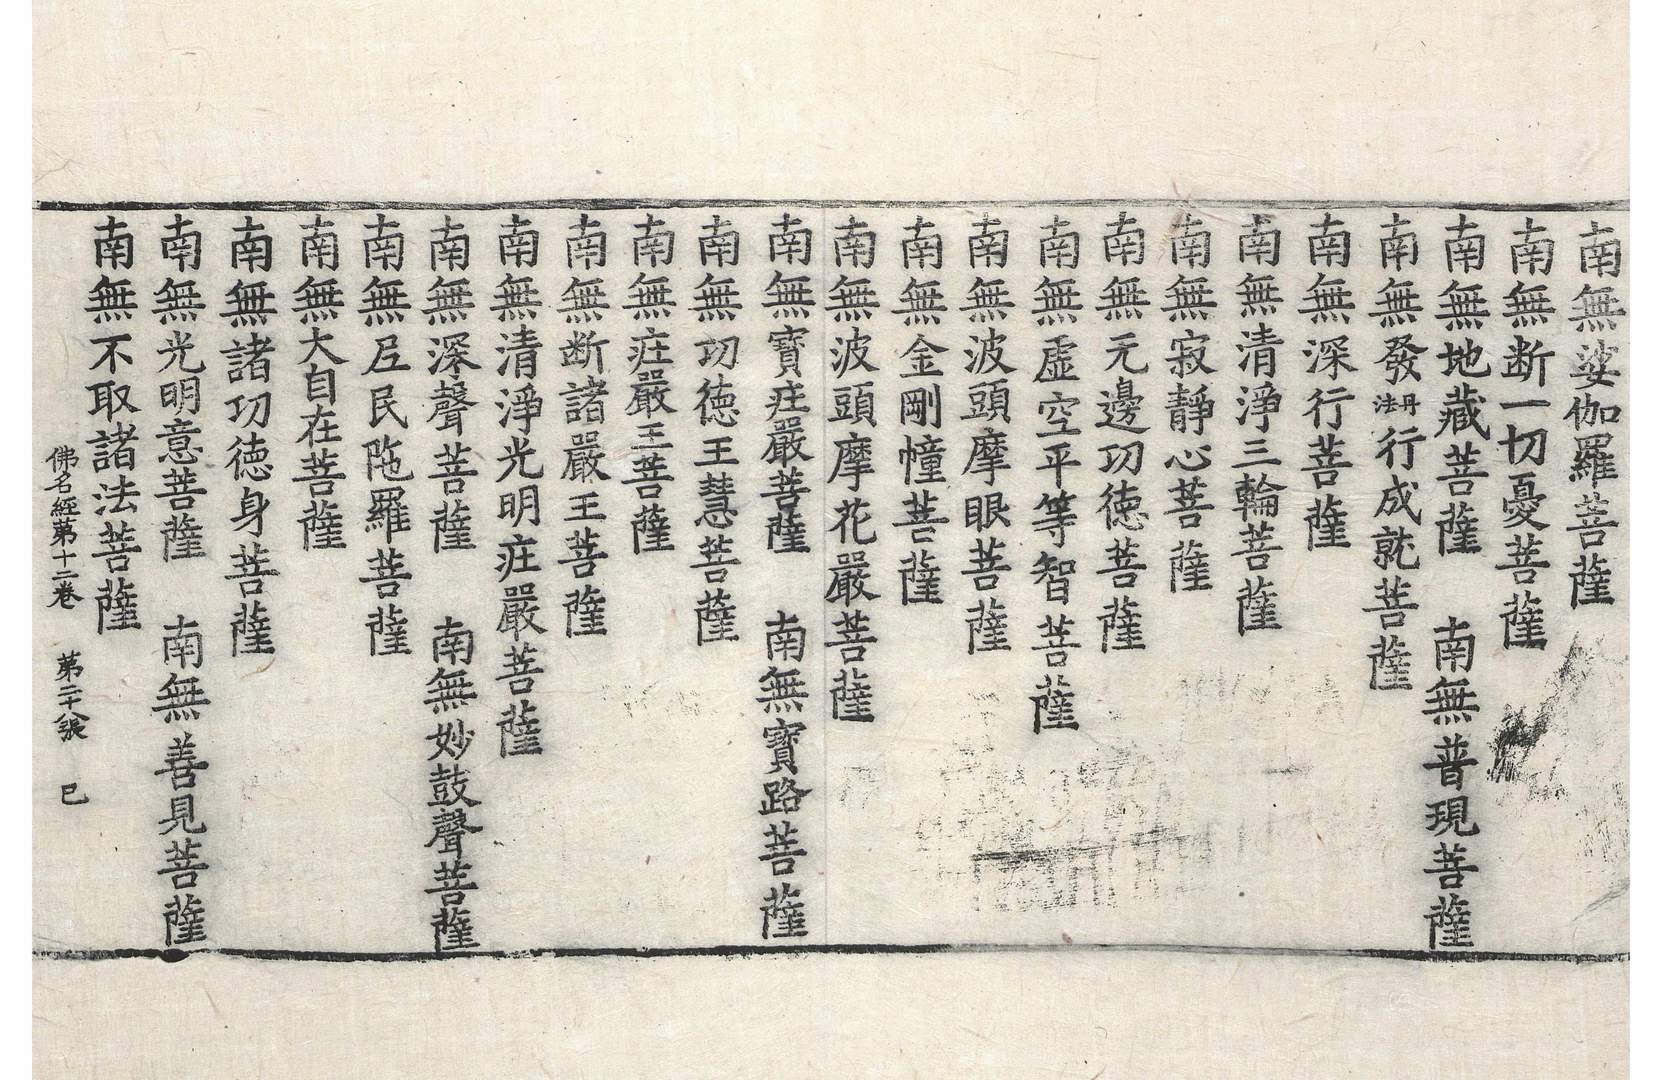 南無娑伽羅菩薩
南無断一切憂菩薩
南無地藏菩薩　南無普現菩薩
南無發丹法行成就菩薩
南無深行菩薩
南無清淨三輪菩薩
南無寂靜心菩薩
南無无邊功德菩薩
南無虛空平等智菩薩
南無波頭摩眼菩薩
南無金剛幢菩薩
南無波頭摩花嚴菩薩
南無寶莊嚴菩薩　南無寶路菩薩
南無功德王慧菩薩
南無莊嚴王菩薩
南無断諸嚴王菩薩
南無清淨光明莊嚴菩薩
南無深聲菩薩　南無妙鼓聲菩薩
南無尼民陁羅菩薩
南無大自在菩薩
南無諸功德身菩薩
南無光明意菩薩　南無善見菩薩
南無不取諸法菩薩
佛名經第十二卷　第二十張　巳